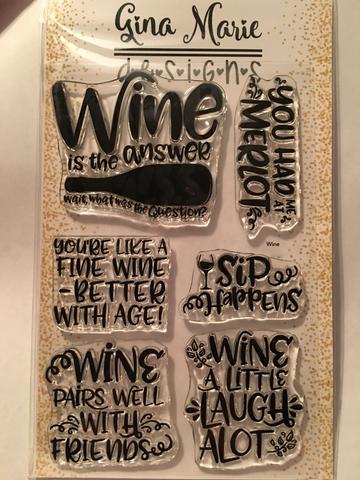 Gina Marie
designs
Wine
is the answer
wait, what was the Question?
YOU HAD
ME AT
MERLOT
Wine
YOU'RE LIKE A
FINE WINE
-BETTER
WITH AGE!
SIP
Happens
WINE
PAIRS WELL
WITH
FRIENDS
WINE
A LITTLE
LAUGH
ALOT